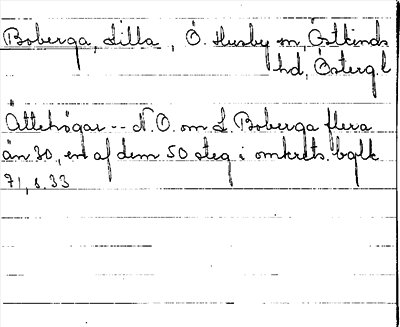 Boberga, Lilla, Ö. Husby sn, Östkinds
hd, Österg. l
Ättehögar -- N.O. om L. Boberga flera
än 30, en af dem 50 steg i omkrets. bglk
71, s. 33